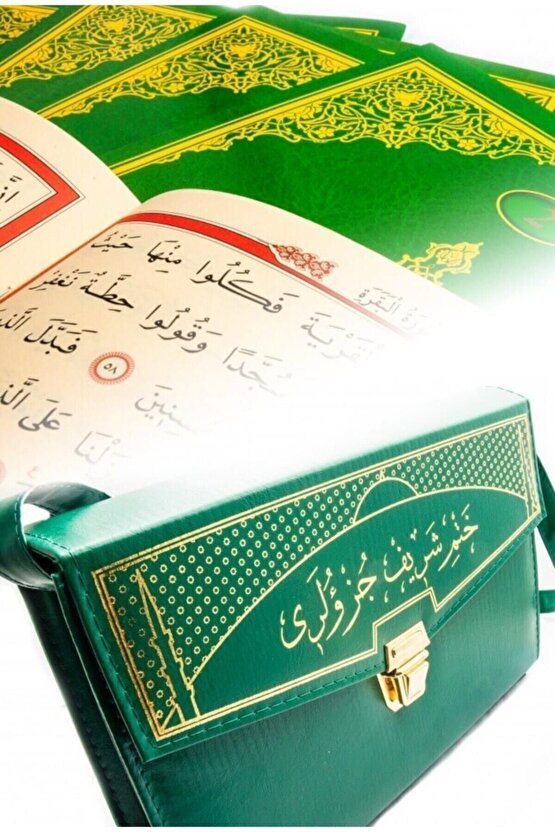 سُورَةُ الْبَقَرَةِ
الْقَرْيَةَ فَكُلُوا مِنْهَا حَيْثُ
سُجَّدًا وَقُولُوا حِطَّةٌ نَغْفِرْ
فَبَدَّلَ الَّذ
٥٨
عَلَى الَّذ
ختم شريف جزؤلرى